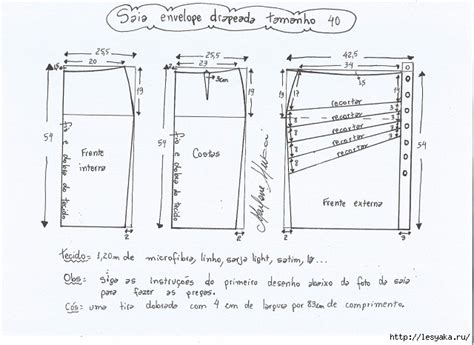 Saia envelope drapeada tamanho 40
25,5
20
19
54
Fio e dobra do tecido
Frente
interna
2
25,5
23,5
3cm
19
54
Fio e dobra do tecido
Costas
2
Marlene Mukai
42,5
39
1,5
19
17
14
recortar
recortar
recortar
recortar
8
8
8
3
3
3
54
Frente externa
2
3
Tecido = 1,20m de microfibra, linho, sarja light, satim, lã ...
Obs: Siga as instruções do primeiro desenho abaixo da foto da saia
para fazer as pregas.
Cós: uma tira dobrada com 4 cm de largura por 83cm de comprimento.
http://lesyaka.ru/